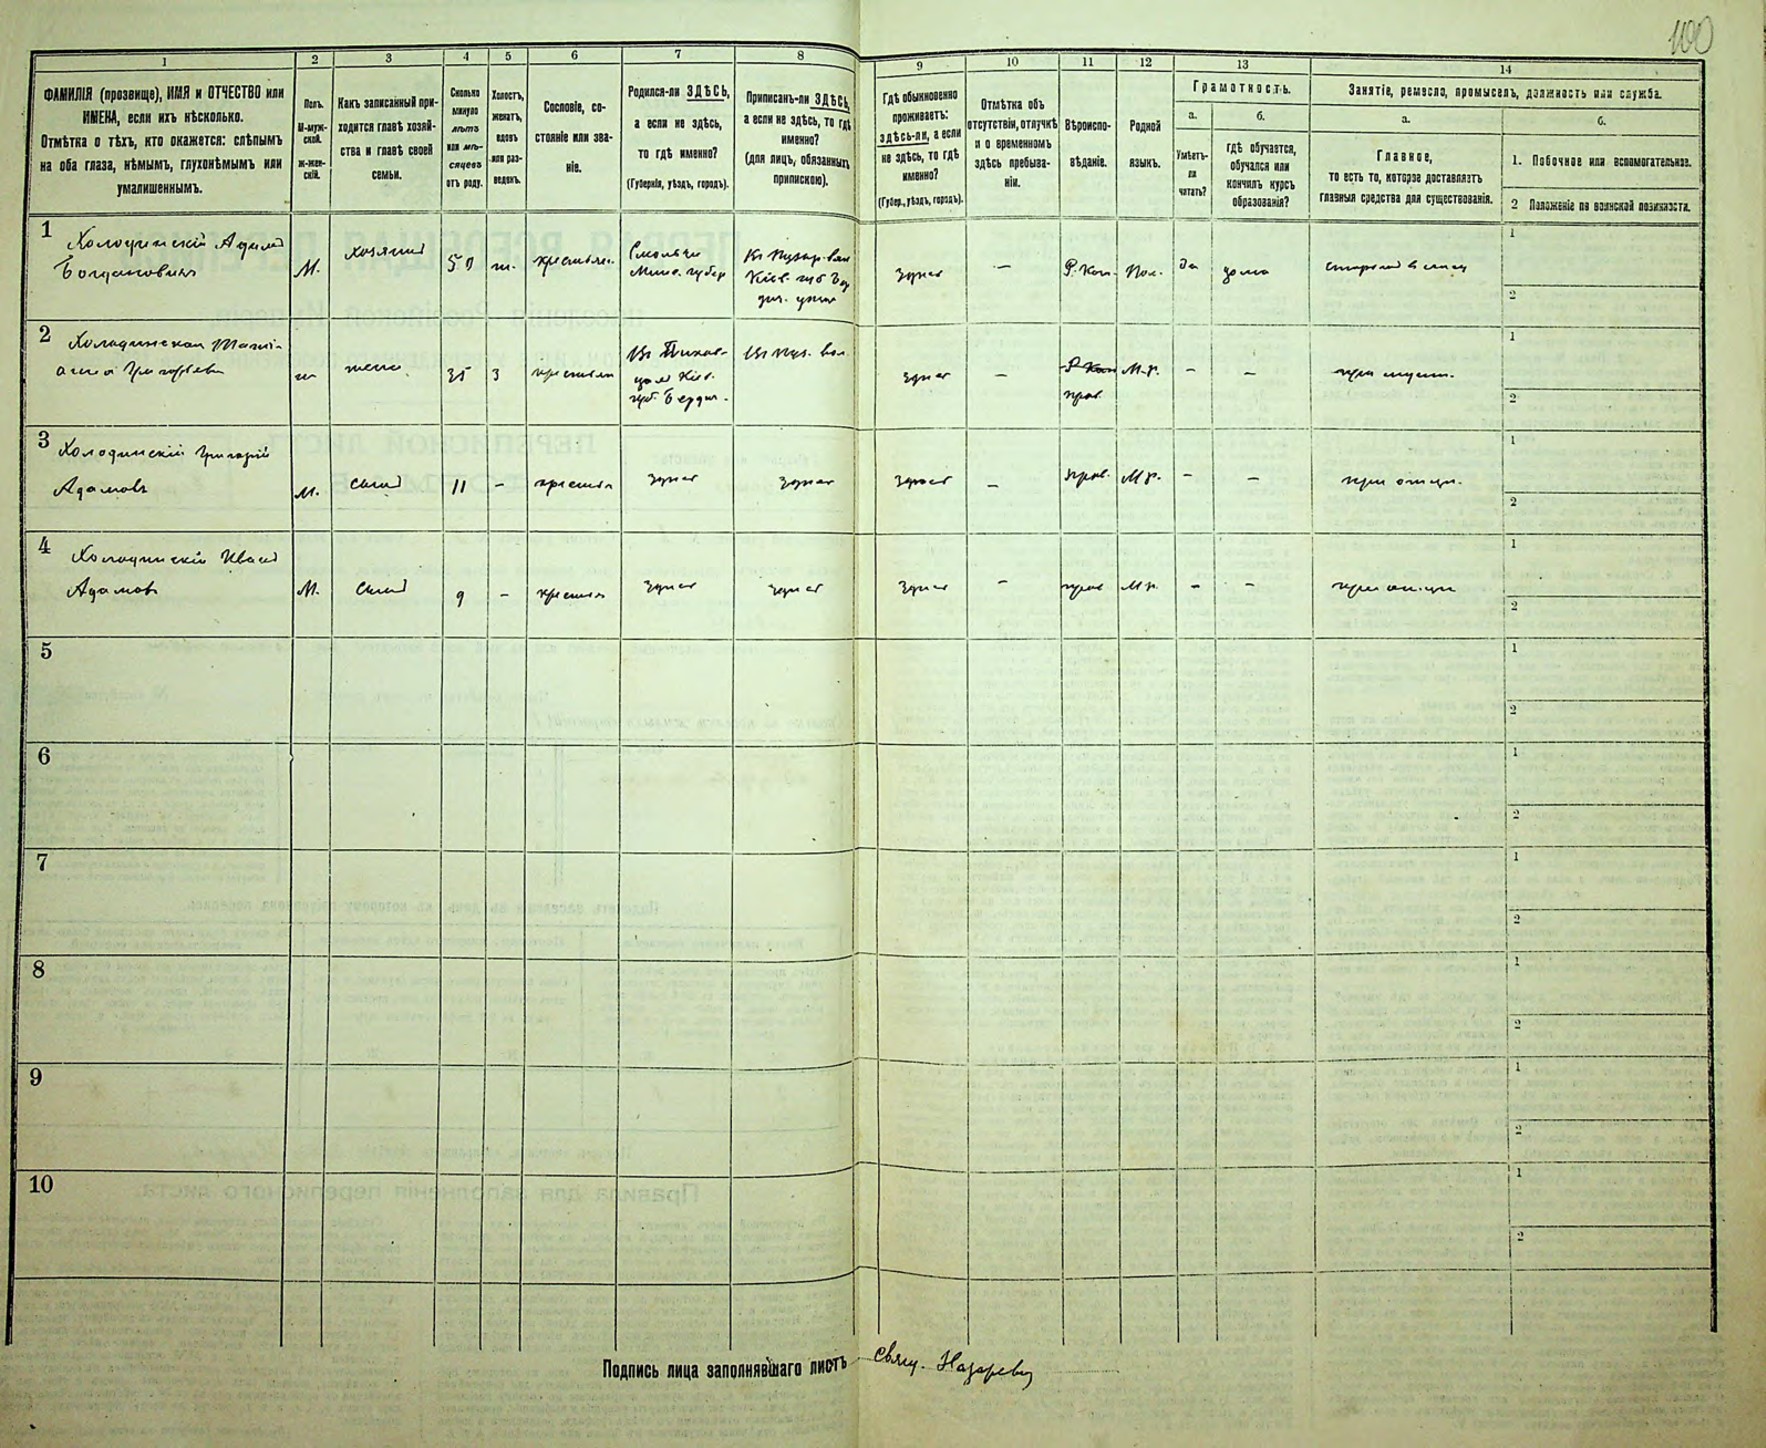 100
1
2
3
4
5
6
7
8
9
10
11
12
13
14
ФАМИЛІЯ (прозвище), ИМЯ и ОТЧЕСТВО или
ИМЕНА, если ихъ нѣсколько.
Отмѣтка о тѣхъ, кто окажется: слѣпымъ
на оба глаза, нѣмымъ, глухонѣмымъ или
умалишеннымъ.
Полъ.
М-муж-
ской.
ж-жен-
скій.
Какъ записанный при-
ходится главѣ хозяй-
ства и главѣ своей
семьи.
Сколько
минуло
лѣтъ
или мѣ-
сяцевъ
отъ роду.
Холостъ,
женатъ,
вдовъ
или раз-
веденъ.
Сословіе, со-
стояніе или зва-
ніе.
Родился-ли ЗДѢСЬ,
а если не здѣсь,
то гдѣ именно?
(Губернія, уѣздъ, городъ).
Приписанъ-ли ЗДѢСЬ,
а если не здѣсь, то гдѣ
именно?
(для лицъ, обязанныхъ
припискою).
Гдѣ обыкновенно
проживаетъ:
здѣсь-ли, а если
не здѣсь, то гдѣ
именно?
(Губер., уѣздъ, городъ).
Отмѣтка объ
отсутствіи, отлучкѣ
и о временномъ
здѣсь пребыва-
ніи.
Вѣроиспо-
вѣданіе.
Родной
языкъ.
Грамотность.
а.
б.
Умѣетъ-
ли
читать?
гдѣ обучается,
обучался или
кончилъ курсъ
образованія?
Занятіе, ремесло, промыселъ, должность или служба.
а.
б.
Главное,
то есть то, которое доставляетъ
главныя средства для существованія.
1. Побочное или вспомогательное.
2 Положеніе по воинской повинности.
1
Холодинскій Адамъ
Богдановичъ
М.
хозяинъ
50
ж.
крестьян.
Минс. губер
Кіев. губ Бер
здѣсь
—
Р. Кат.
Пол.
да
дома
1
2
2
Холодинская
Григорьева
ж
жена
35
з
крестьян
Кіев.
губ. Бердич.
здѣсь
—
Р Кат
прав.
М.р.
–
–
при мужѣ.
1
2
3
Холодинскій Григорій
Адамовъ
М.
сынъ
11
–
крестьян
здѣсь
здѣсь
здѣсь
–
прав.
М р.
–
–
при отцѣ.
1
2
4
Холодинскій Иванъ
Адамовъ
М.
сынъ
9
–
крестьян
здѣсь
здѣсь
здѣсь
–
прав
М р.
–
–
при отцѣ
1
2
5
1
2
6
1
2
7
1
2
8
1
2
9
1
2
10
1
2
Подпись лица заполнявшаго листъ Свящ.